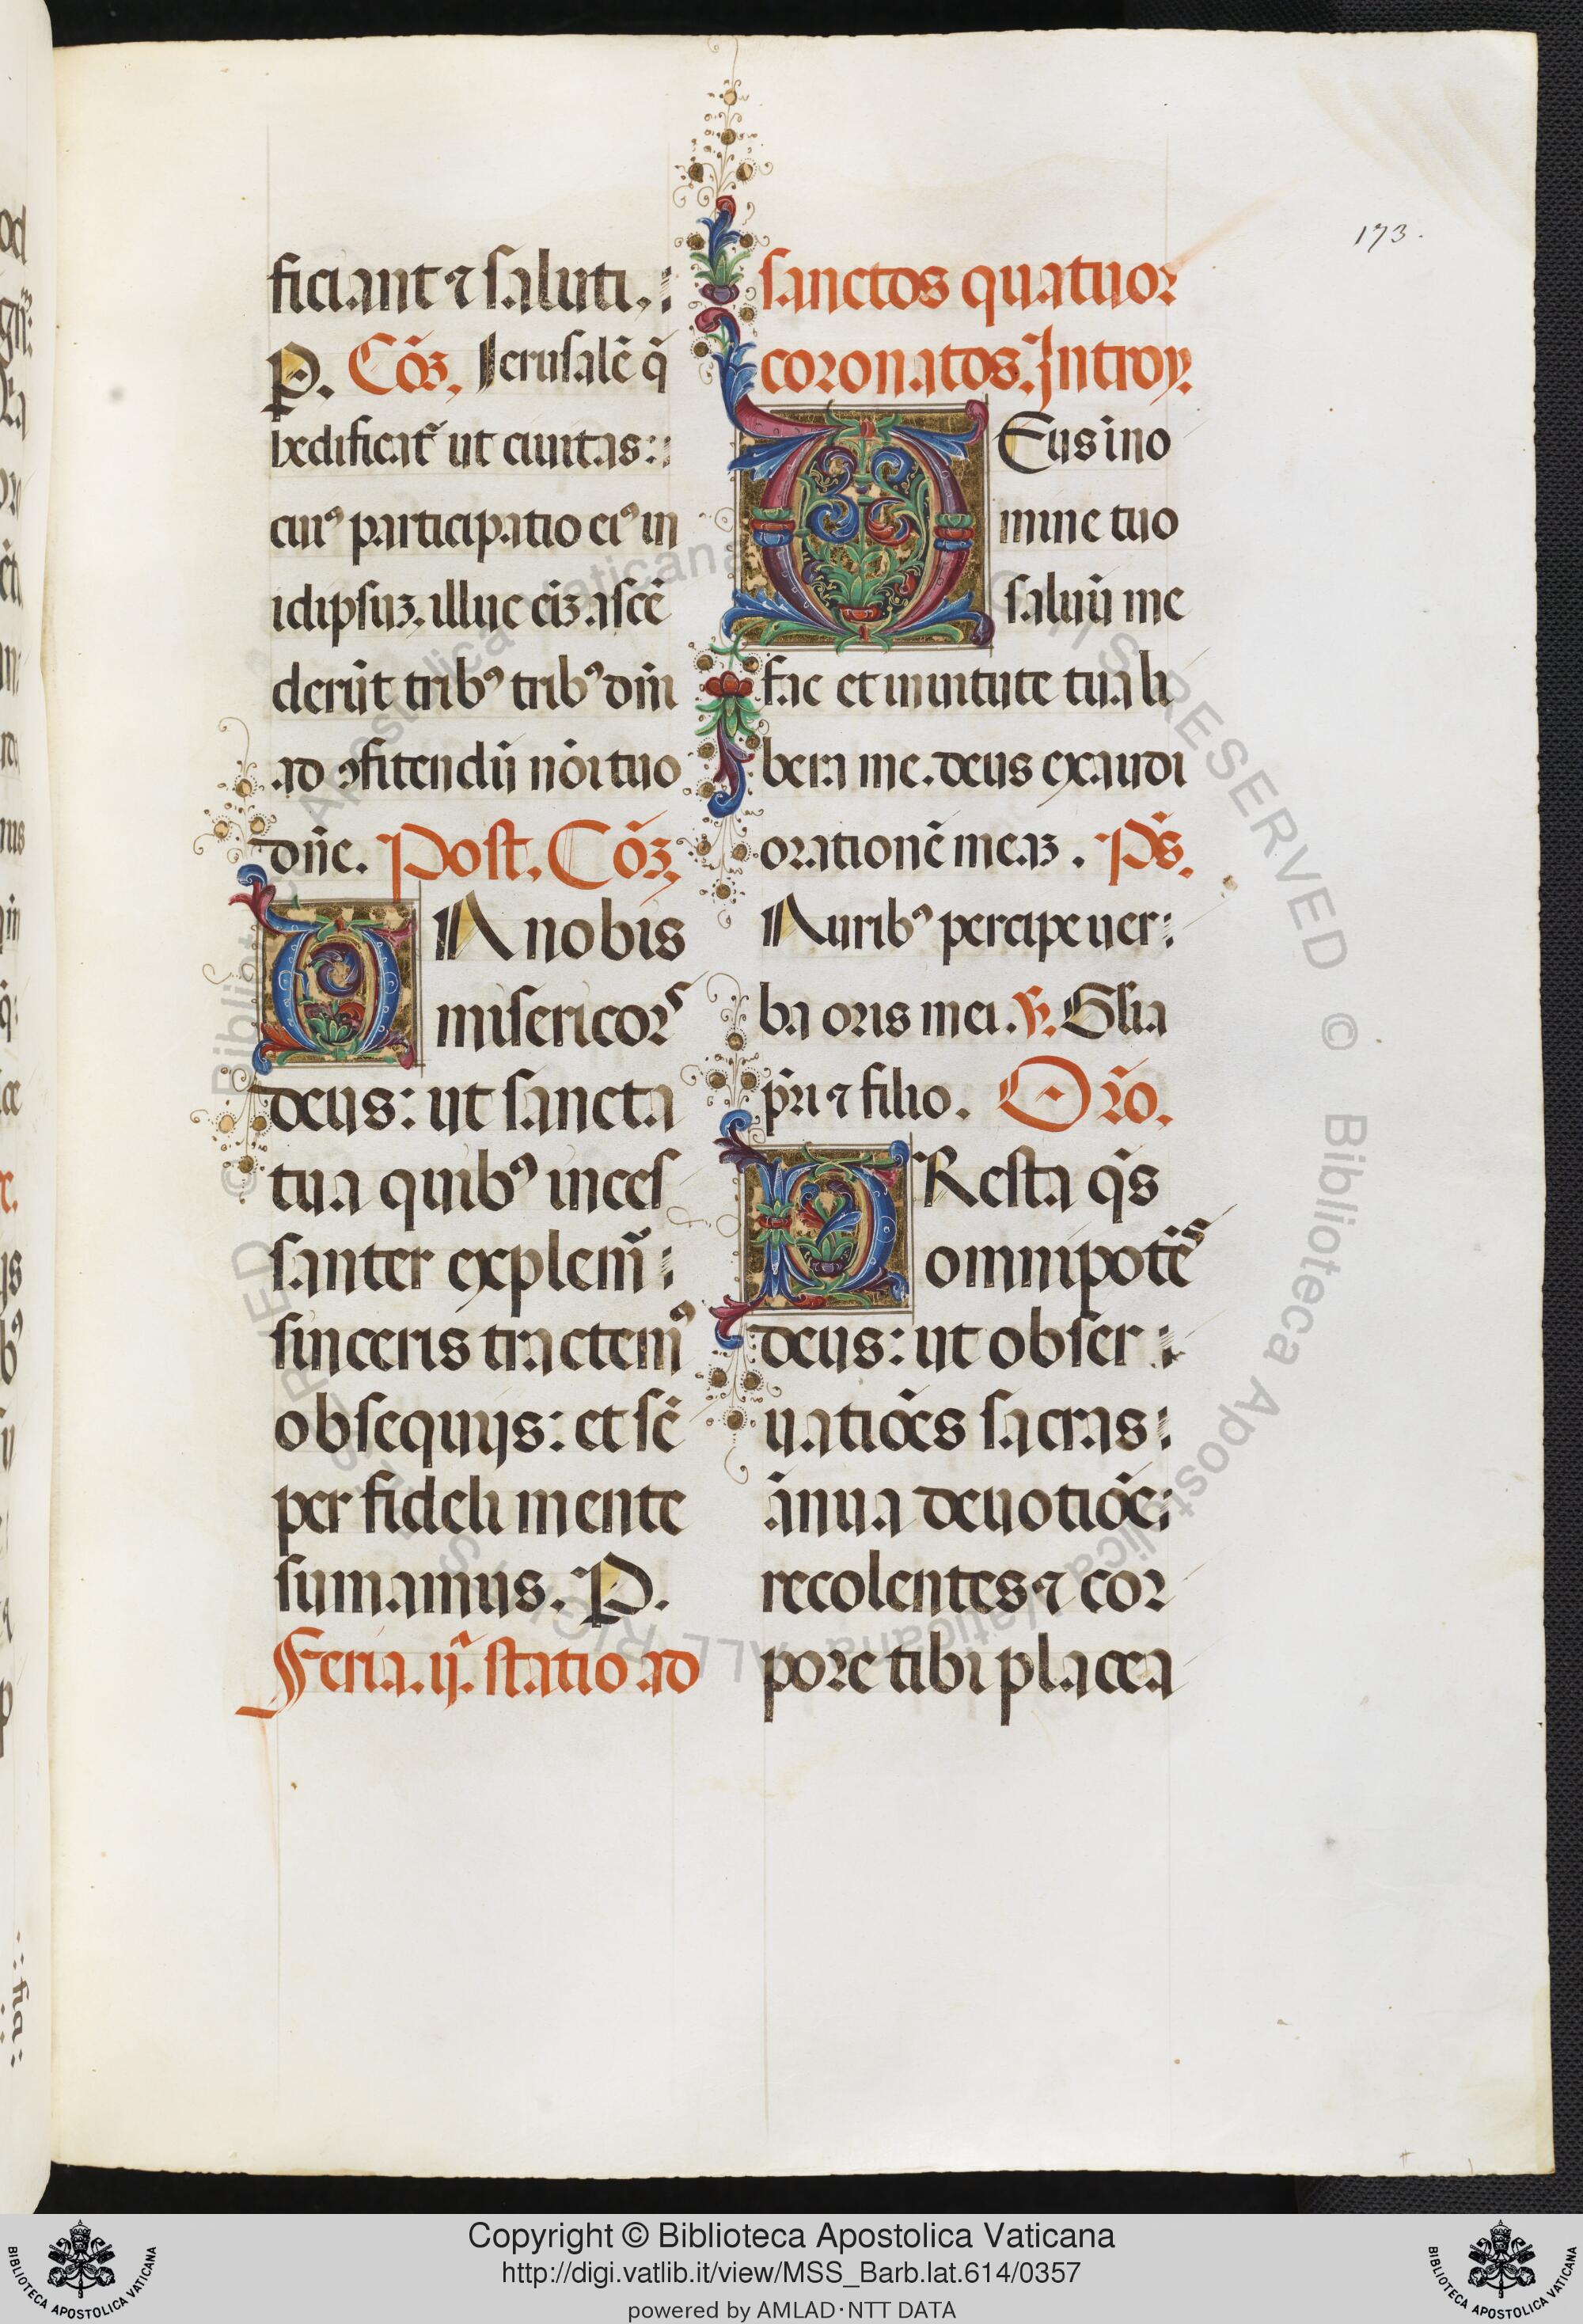 173.
ficiant ⁊ saluti.
P. Cõȝ. Jerusalẽ q̃
hedificat᷑ ut ciuitas:
cuiꝰ participatio eiꝰ in
idipsuȝ. illuc eĩȝ ascẽ
derũt tribꝰ tribꝰ dñi
ad ꝯfitendũ nõi tuo
dñe. Post. Cõȝ.
DA nobis
misericors
deus: ut sancta
tua quibꝰ inces
santer explem̃
sinceris tractemꝰ
obsequijs: et sẽ
per fideli mente
sumamus. P.
Feria. ij. statio ad
sanctos quatuor
coronatos. Introy.
DEus ino
mine tuo
saluũ me
fac et in uirtute tua li
bera me. deus exaudi
orationẽ meaȝ. Ps̃.
Auribꝰ percipe uer
ba oris mei. ℣. Glia
pr̃i ⁊ filio. Or̃o.
PResta q̃s
omnipotẽs
deus: ut obser
uatiões sacras
ãnua deuotiõe
recolentes ⁊ cor
pore tibi placea
Copyright © Biblioteca Apostolica Vaticana
http://digi.vatlib.it/view/MSS_Barb.lat.614/0357
powered by AMLAD·NTT DATA
BIBLIOTECA APOSTOLICA VATICANA
BIBLIOTECA APOSTOLICA VATICANA